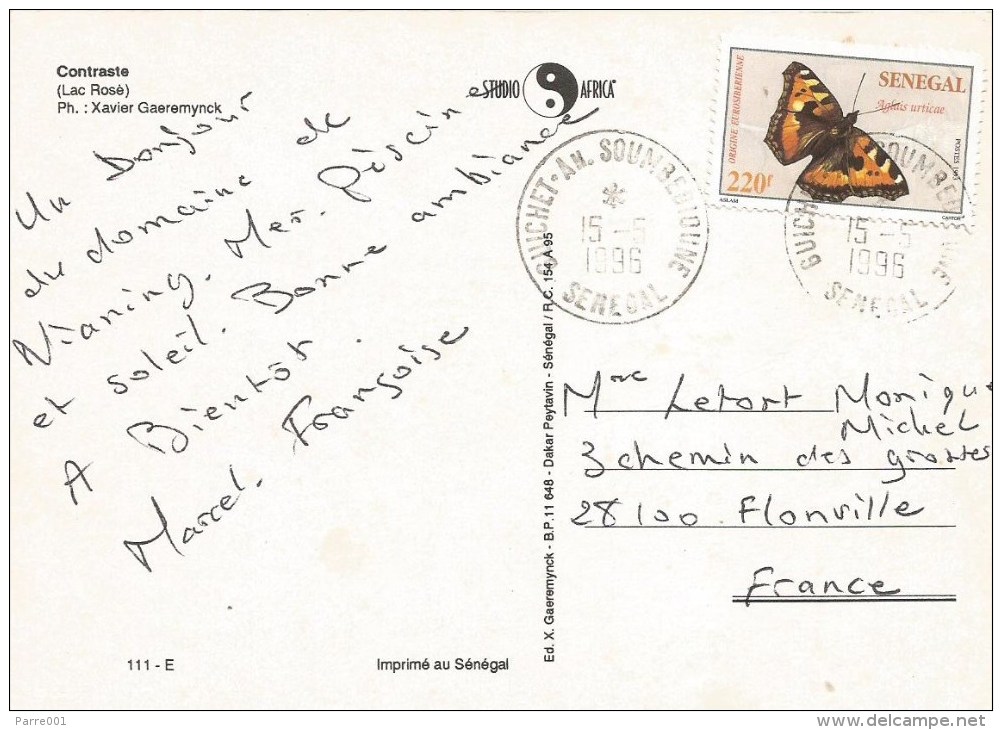 Contraste
(Lac Rosè)
Ph. : Xavier Gaeremynck
STUDIO AFRICA
Un Bonjour
du domaine de
Nianing. Mer. Pèscine
et soleil. Bonne ambiance
A Bientôt.
Marcel. Françoise
111 - E
Imprimé au Sénégal
Ed. X. Gaeremynck - B.P. 11 648 - Dakar Peytavin - Sénégal / R.C. 154 A 95
GUICHET-AN. SOUMBEDIOUNE
15 -5
1996
SENEGAL
ORIGINE EUROSIBERIENNE
SENEGAL
Aglais urticae
POSTES 1995
220f
ASLAM
CARTOR
GUICHET SOUMBEDIOUNE
15 -5
1996
SENEGAL
Mme Letort Monique
Michel
3 chemin des grottes
28100. Flonville
France
Parre001
www.delcampe.net